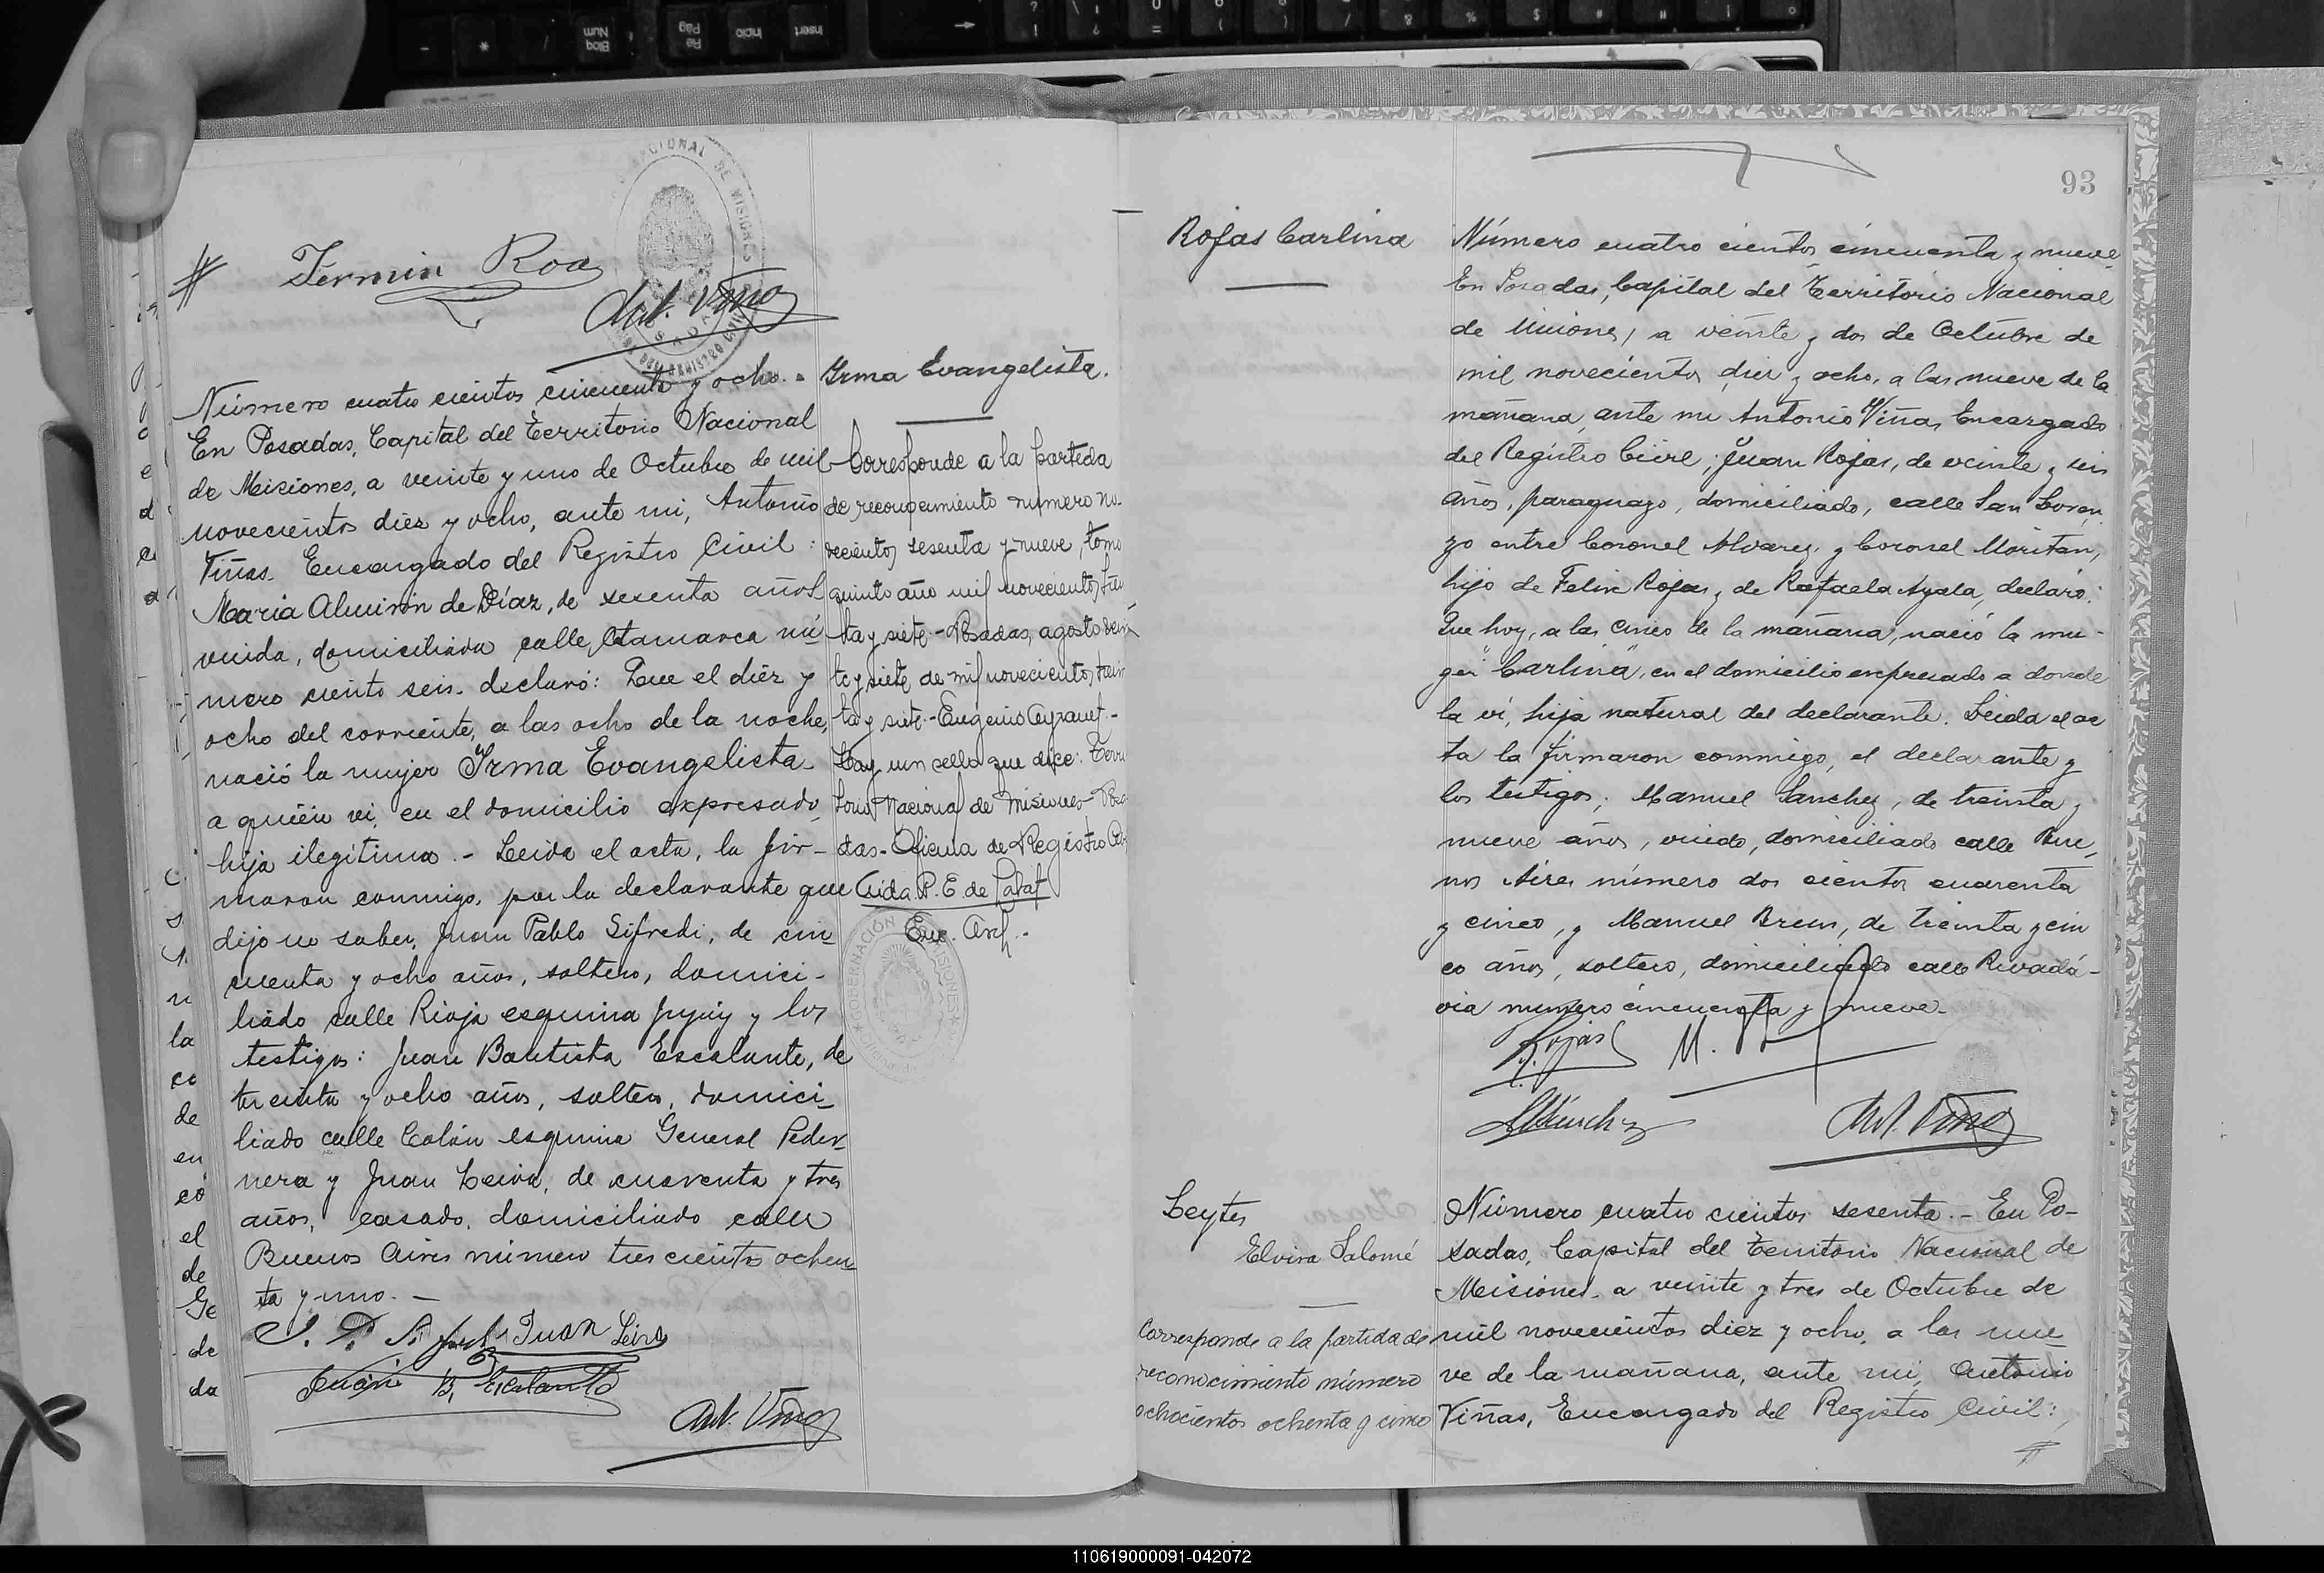 Fermin Roa
Ant. Viñas
Número cuatro cientos cincuenta y ocho. -
En Posadas, Capital del Territorio Nacional
de Misiones, a veinte y uno de Octubre de mil
novecientos diez y ocho, ante mi, Antonio
Viñas. Encargado del Registro Civil:
Maria Almirón de Díaz, de sesenta años
viuda, domiciliada calle Catamarca nú-
mero ciento seis. declaró: Que el diez y
ocho del corriente, a las ocho de la noche,
nació la mujer Irma Evangelista
a quién vi, en el domicilio expresado,
hija ilegítima. - Leida el acta, la fir-
maron conmigo, por la declarante que
dijo no saber, Juan Pablo Sifredi, de cin-
cuenta y ocho años, soltero, domici-
liado calle Rioja esquina Jujuy y los
testigos: Juan Bautista Escalante, de
treinta y ocho años, soltero, domici-
liado calle Colón esquina General Peder-
nera y Juan Leiva, de cuarenta y tres
años, casado, domiciliado calle
Buenos Aires número tres ciento ochen-
ta y uno. -
Juan Leiva
Juan B. Escalante
Ant. Viñas
Irma Evangelista.
Corresponde a la partida
de reconocimiento número no-
vecientos sesenta y nueve, tomo
quinto año mil novecientos trein
ta y siete - Posadas, agosto vein
te y siete de mil novecientos trein
ta y siete. - Eugenio
Hay un sello que dice: Terri
torio Nacional de Misiones - Posa
das - Oficina de Registro Civil
Aida P. E. de
Enc. Arch. -
93
Rojas Carlina
Número cuatro cientos cincuenta y nueve
En Posadas, Capital del Territorio Nacional
de Misiones, a veinte y dos de Octubre de
mil novecientos diez y ocho, a las nueve de la
mañana, ante mi Antonio Viñas, Encargado
del Registro Civil; Juan Rojas, de veinte y seis
años, paraguayo, domiciliado, calle San Loren
zo entre Coronel Alvarez y Coronel Moritan,
hijo de Felix Rojas y de Rafaela Ayala, declaró:
Que hoy, a las cinco de la mañana, nació la mu-
ger "Carlina", en el domicilio expresado a donde
la ví, hija natural del declarante. Leida el ac
ta la firmaron conmigo, el declarante y
los testigos; Manuel Sanchez, de treinta y
nueve años, viudo, domiciliado calle Bue,
nos Aires número dos cientos cuarenta
y cinco, y Manuel Brem, de treinta y cin
co años, soltero, domiciliado calle Rivadá-
via número cincuenta y nueve.
Rojas
M.
MSánchez
Ant. Viñas
Leytes
Elvira Salomé
Corresponde a la partida de
reconocimiento número
ochocientos ochenta y cinco
Número cuatro cientos sesenta. - En Po-
sadas, Capital del Territorio Nacional de
Misiones, a veinte y tres de Octubre de
mil novecientos diez y ocho, a las nue-
ve de la mañana, ante mi, Antonio
Viñas, Encargado del Registro Civil:
110619000091-042072